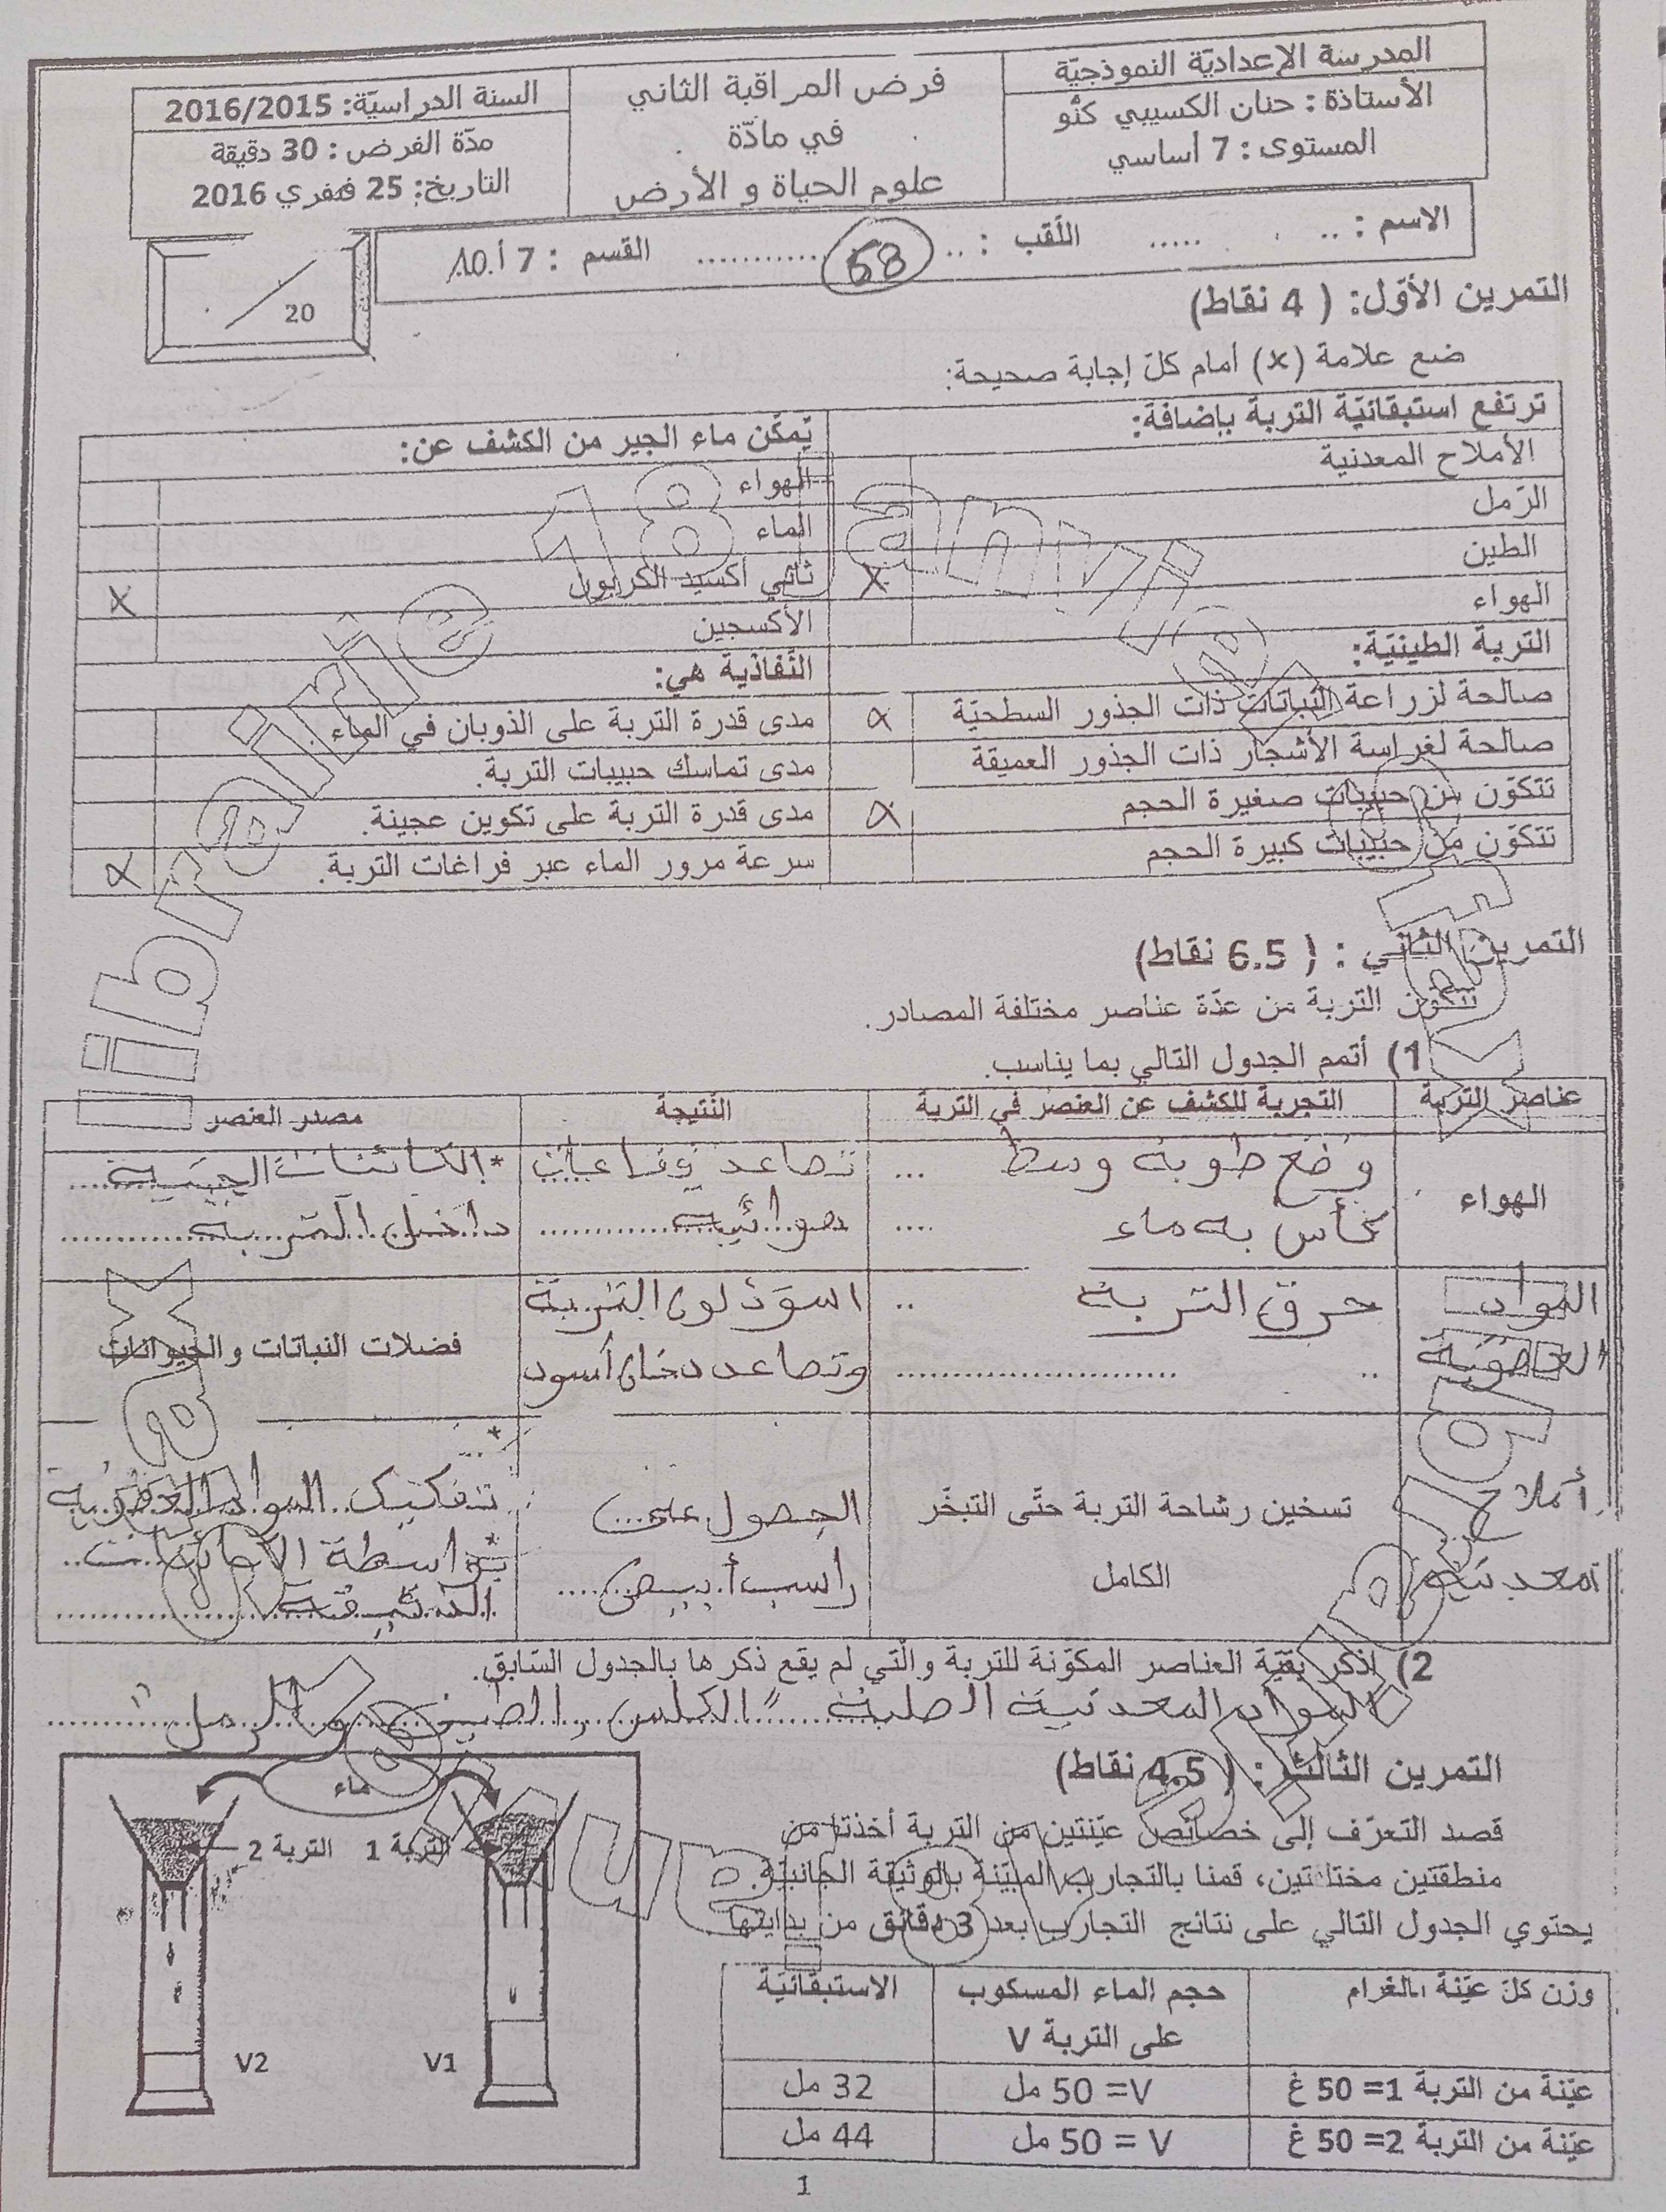 المدرسة الإعداديّة النموذجيّة
الأستاذة : حنان الكسيبي كنّو
المستوى : 7 أساسي
فرض المراقبة الثاني
في مادّة
علوم الحياة و الأرض
السنة الدراسيّة: 2016/2015
مدّة الفرض : 30 دقيقة
التاريخ: 25 فيفري 2016
الاسم : .. ..... اللّقب : .. ............ القسم : 7 أ.10
58
20
التمرين الأوّل: ( 4 نقاط)
ضع علامة (x) أمام كلّ إجابة صحيحة:
ترتفع استبقائيّة التربة بإضافة:
الأملاح المعدنية
الرّمل
الطين X
الهواء
التربة الطينيّة:
صالحة لزراعة النباتات ذات الجذور السطحيّة x
صالحة لغراسة الأشجار ذات الجذور العميقة
تتكوّن من حبيبات صغيرة الحجم x
تتكوّن من حبيبات كبيرة الحجم
يمكّن ماء الجير من الكشف عن:
الهواء
الماء
ثاني أكسيد الكربون X
الأكسجين
النّفاذية هي:
مدى قدرة التربة على الذوبان في الماء .
مدى تماسك حبيبات التربة.
مدى قدرة التربة على تكوين عجينة.
سرعة مرور الماء عبر فراغات التربة. x
التمرين الثاني : ( 6.5 نقاط)
تتكوّن التربة من عدّة عناصر مختلفة المصادر.
1) أتمم الجدول التالي بما يناسب.
عناصر التربة التجربة للكشف عن العنصر في التربة النّتيجة مصدر العنصر
الهواء وضع طوبة وسط كأس به ماء تصاعد فقاعات هوائية *الكائنات الحية داخل التربة
المواد العضوية حرق التربة اسودّ لون التربة وتصاعد دخان أسود فضلات النباتات والحيوانات
أملاح معدنية تسخين رشاحة التربة حتّى التبخّر الكامل الحصول على راسب أبيض تفكيك المواد العضوية بواسطة الكائنات الدقيقة
2) اذكر بقيّة العناصر المكوّنة للتربة والّتي لم يقع ذكرها بالجدول السّابق.
المواد المعدنية الصلبة " الكلس والطين والرمل "
التمرين الثالث : ( 4.5 نقاط)
قصد التعرّف إلى خصائص عيّنتين من التربة أخذتا من
منطقتين مختلفتين، قمنا بالتجارب المبيّنة بالوثيقة الجانبيّة.
يحتوي الجدول التالي على نتائج التجارب بعد 3 دقائق من بدايتها.
وزن كلّ عيّنة بالغرام حجم الماء المسكوب على التربة V الاستبقائيّة
عيّنة من التربة 1= 50 غ V= 50 مل 32 مل
عيّنة من التربة 2= 50 غ V = 50 مل 44 مل
ماء
التربة 1 التربة 2
V1 V2
1
librairie 18 janvier